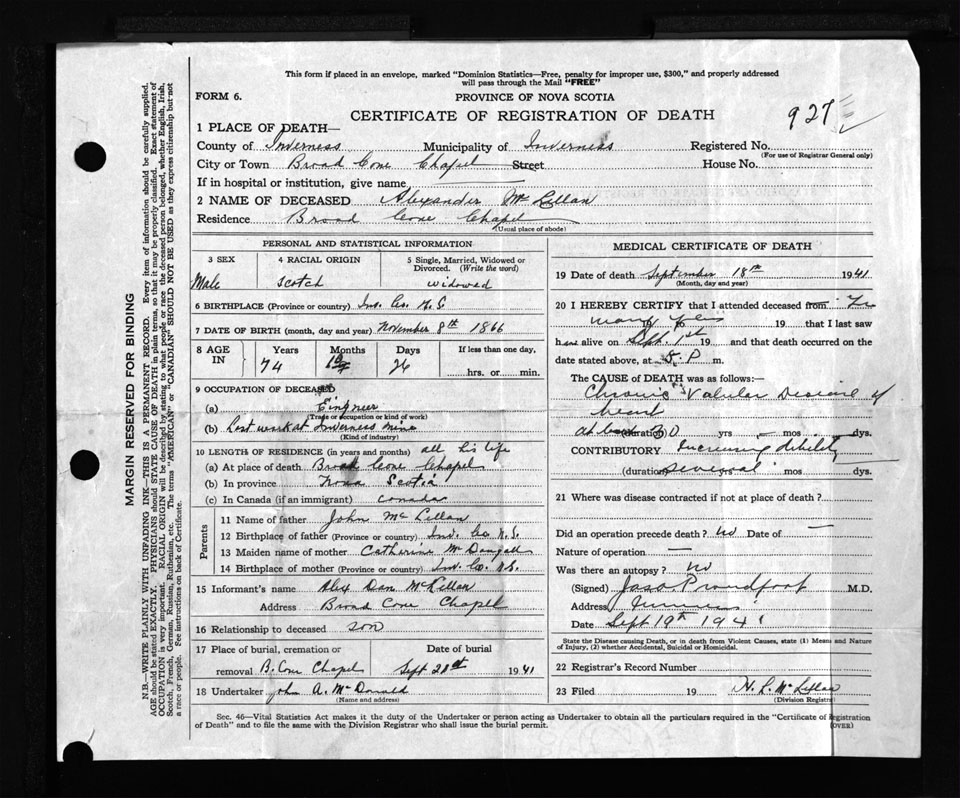 This form if placed in an envelope, marked "Dominion Statistics—Free, penalty for improper use, $300," and properly addressed
will pass through the Mail "FREE"
FORM 6.
PROVINCE OF NOVA SCOTIA
CERTIFICATE OF REGISTRATION OF DEATH
927
1 PLACE OF DEATH—
County of Inverness Municipality of Inverness Registered No.
(For use of Registrar General only)
City or Town Broad Cove Chapel Street House No.
If in hospital or institution, give name
2 NAME OF DECEASED Alexander McLellan
Residence Broad Cove Chapel
(Usual place of abode)
PERSONAL AND STATISTICAL INFORMATION
3 SEX 4 RACIAL ORIGIN 5 Single, Married, Widowed or
Divorced. (Write the word)
Male Scotch widowed
6 BIRTHPLACE (Province or country) Inv. Co. N.S
7 DATE OF BIRTH (month, day and year) November 8th 1866
8 AGE IN Years Months Days If less than one day,
74 10 26 hrs. or min.
9 OCCUPATION OF DECEASED
(a) Engineer
(Trade or occupation or kind of work)
(b) Last work at Inverness mine
(Kind of industry)
10 LENGTH OF RESIDENCE (in years and months) all his life
(a) At place of death Broad Cove Chapel
(b) In province Nova Scotia
(c) In Canada (if an immigrant) Canada
Parents
11 Name of father John McLellan
12 Birthplace of father (Province or country) Inv. Co. N.S.
13 Maiden name of mother Catherine McDougall
14 Birthplace of mother (Province or country) Inv. Co. N.S.
15 Informant's name Alex Dan McLellan
Address Broad Cove Chapel
16 Relationship to deceased son
17 Place of burial, cremation or Date of burial
removal B. Cove Chapel Sept 21st 1941
18 Undertaker John A. McDonald
(Name and address)
MEDICAL CERTIFICATE OF DEATH
19 Date of death September 18th 1941
(Month, day and year)
20 I HEREBY CERTIFY that I attended deceased from For
many years 19 to 19 that I last saw
h alive on Sept. 1st 19 and that death occurred on the
date stated above, at 8. P. m.
The CAUSE of DEATH was as follows:—
Chronic Valvular Disease of
heart
(duration) 20 yrs mos dys.
CONTRIBUTORY Increasing debility
(duration) several mos dys.
21 Where was disease contracted if not at place of death?
Did an operation precede death? no Date of —
Nature of operation —
Was there an autopsy? no
(Signed) Jas Proudfoot M.D.
Address Inverness
Date Sept 19th 1941
State the Disease causing Death, or in death from Violent Causes, state (1) Means and Nature
of Injury, (2) whether Accidental, Suicidal or Homicidal.
22 Registrar's Record Number
23 Filed 19 H. L. McLellan
(Division Registrar)
Sec. 46—Vital Statistics Act makes it the duty of the Undertaker or person acting as Undertaker to obtain all the particulars required in the "Certificate of Registration
of Death" and to file the same with the Division Registrar who shall issue the burial permit.
(OVER)
MARGIN RESERVED FOR BINDING
N.B.—WRITE PLAINLY WITH UNFADING INK—THIS IS A PERMANENT RECORD. Every item of information should be carefully supplied.
AGE should be stated EXACTLY. PHYSICIANS should STATE CAUSE OF DEATH in plain terms, so that it may be properly classified. Exact statement of
OCCUPATION is very important. RACIAL ORIGIN will be described by stating to what people or race the deceased person belonged, whether English, Irish,
Scotch, French, German, Russian, Ruthenian, etc. The terms "AMERICAN" or "CANADIAN" SHOULD NOT BE USED as they express citizenship but not
a race or people. See instructions on back of Certificate.